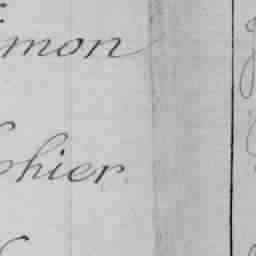 imon
phier